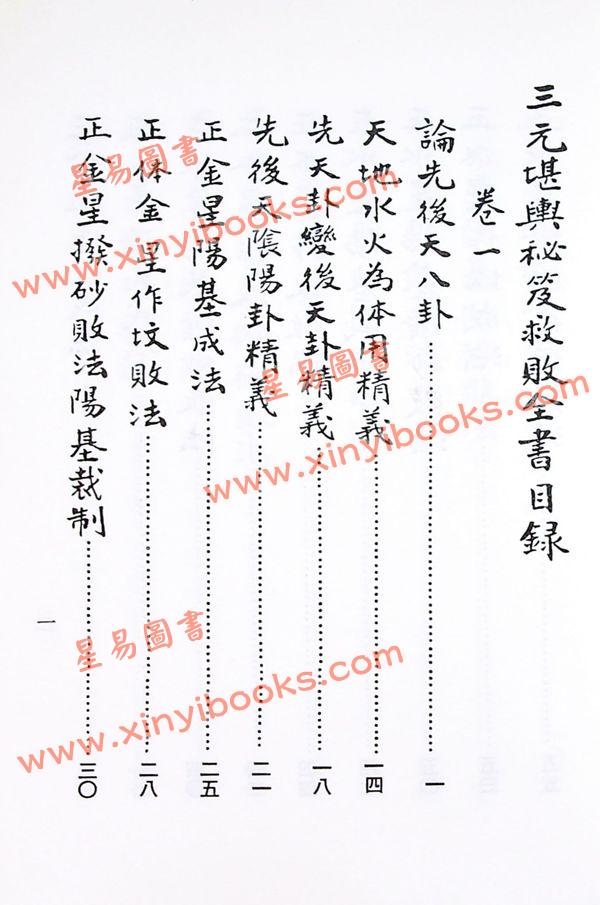 三元堪輿秘笈救敗全書目錄
卷一
論先後天八卦……一
天地水火為体用精義……一四
先天卦變後天卦精義……一八
先後天陰陽卦精義……二一
正金星陽基成法……二五
正体金星作坟敗法……二八
正金星撥砂敗法陽基裁制……三〇
一
星易圖書
www.xinyibooks.com
星易圖書
www.xinyibooks.com
星易圖書
www.xinyibooks.com